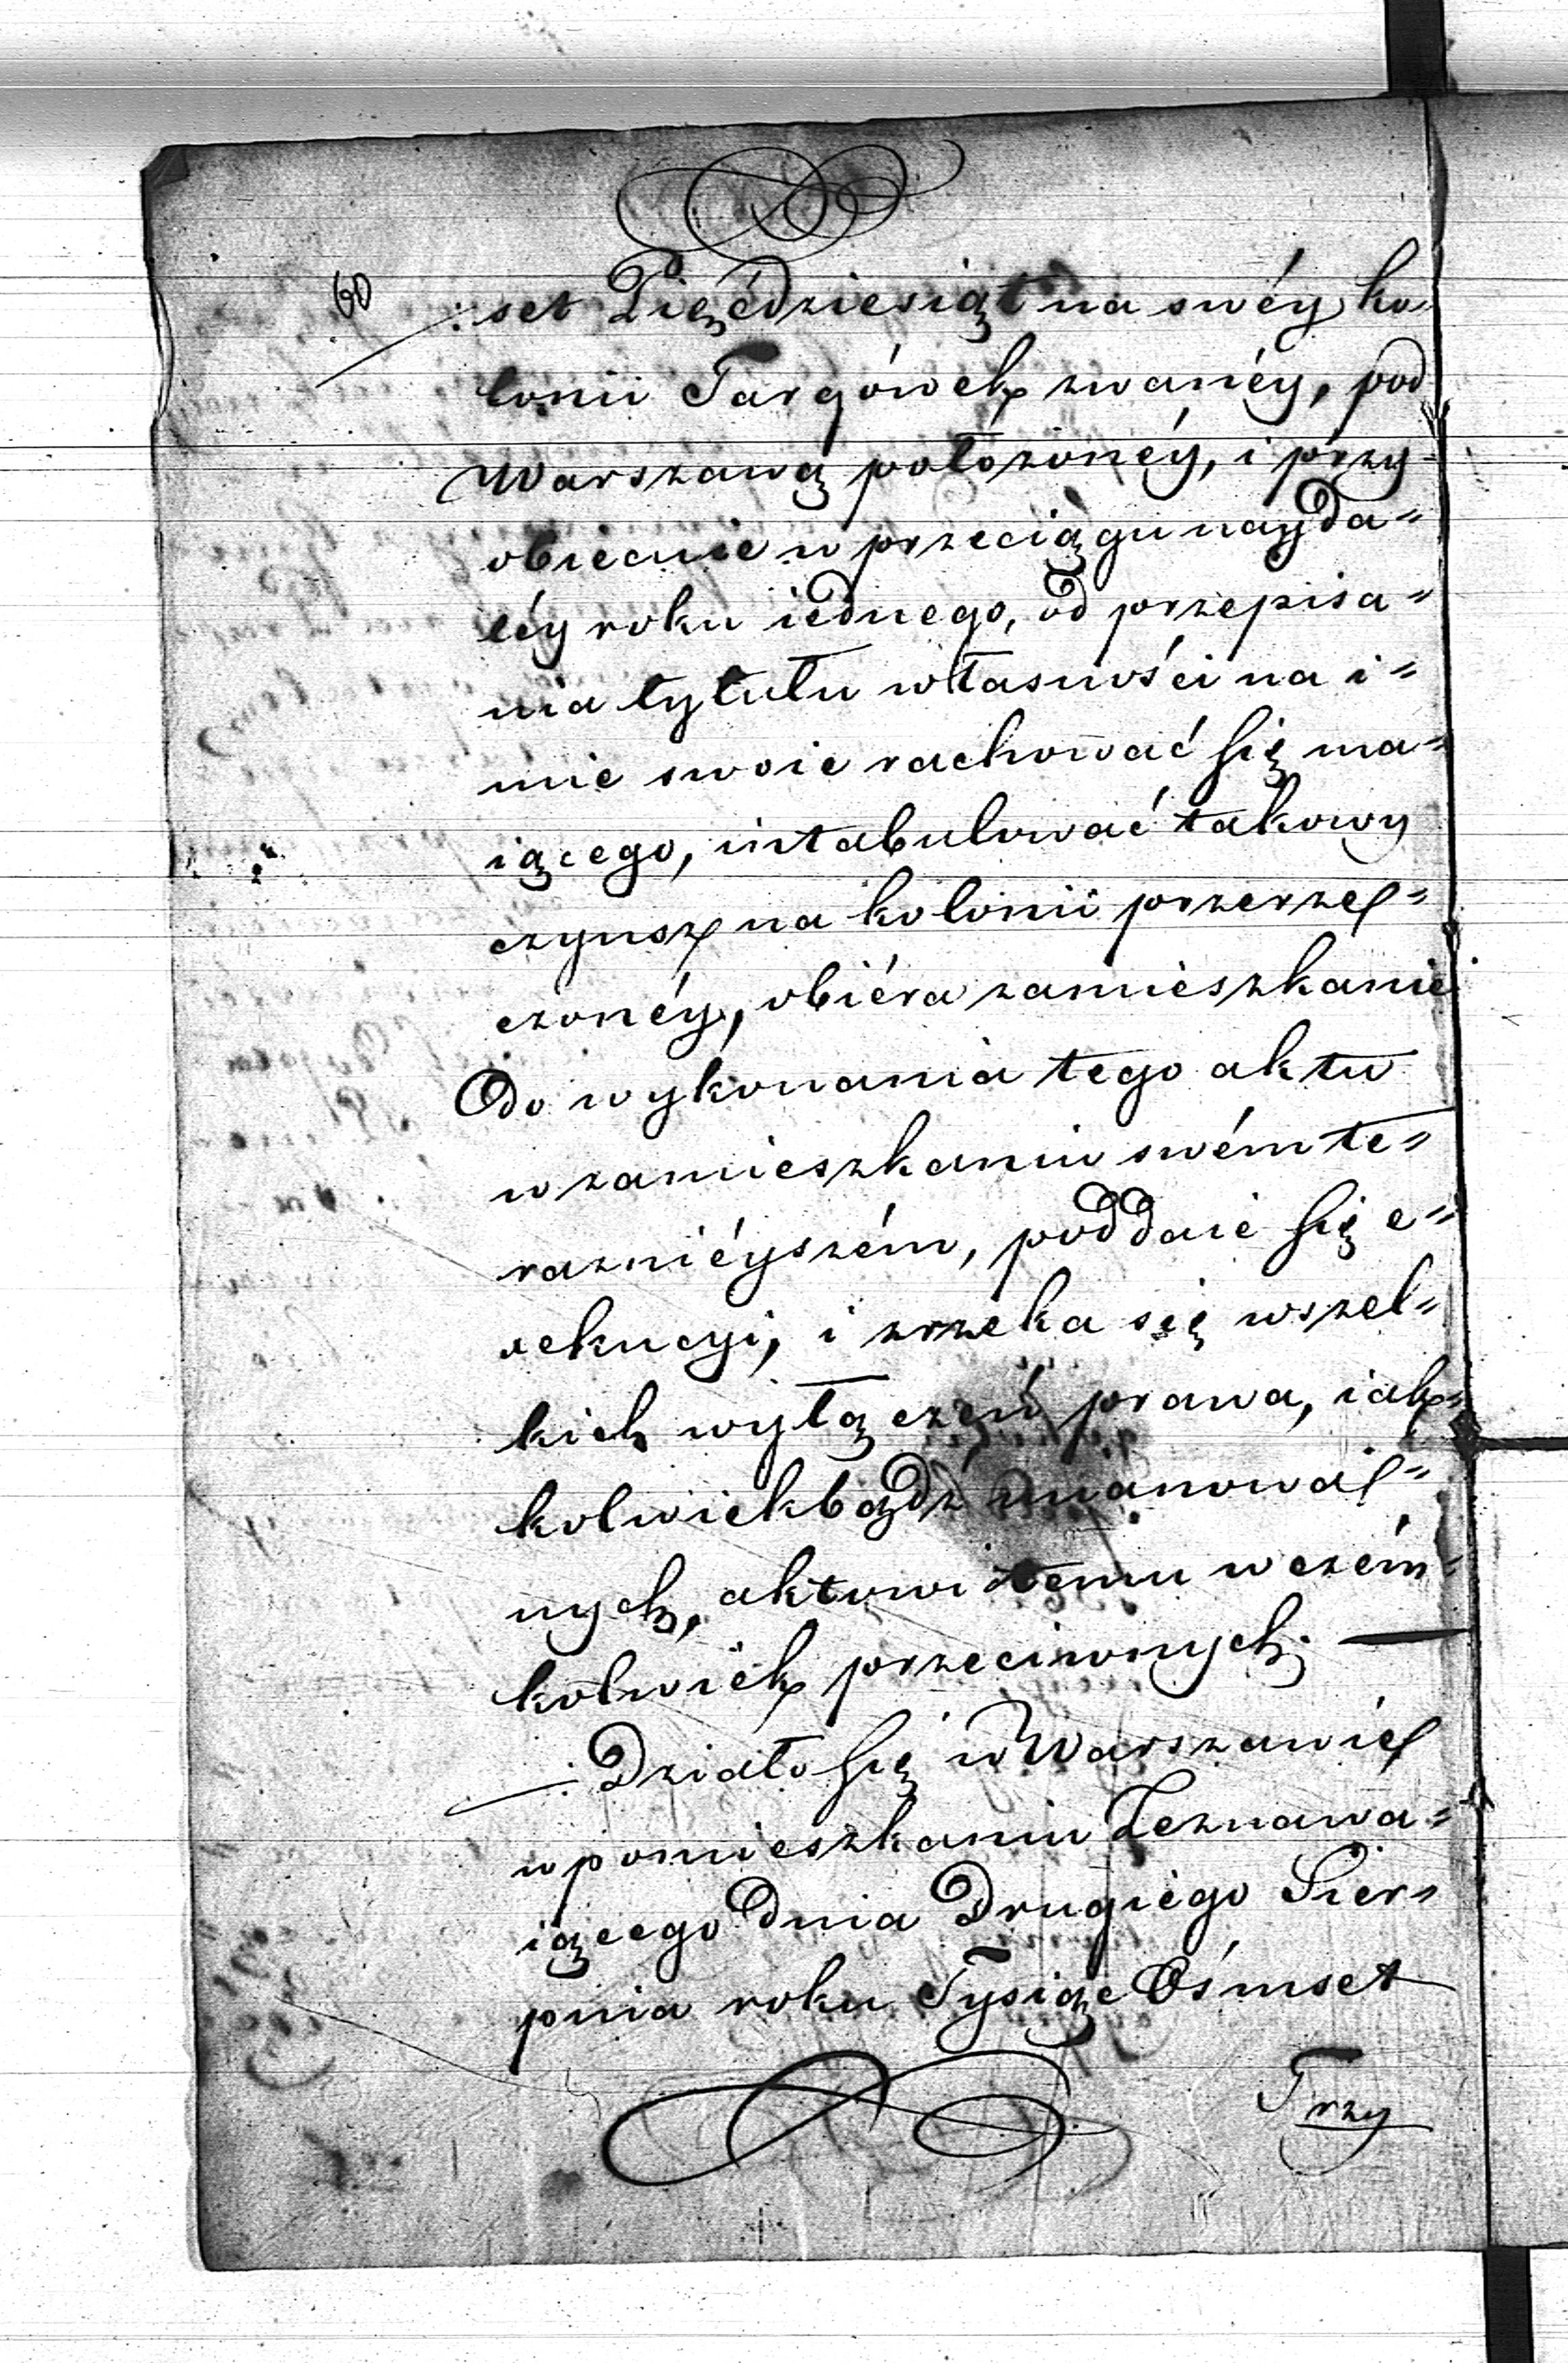 60
set Pięćdziesiąt na swéy ko„
lonii Targówek zwanéy, pod
Warszawą położonéy, i przy-
obiecuie w przeciągu nayda„
léy roku iednego, od przepisa„
nia tytułu własności na i„
mie swoie rachować się ma„
iącego, intabulować takowy
czynsz na kolonii przerze„
czonéy, obiéra zamieszkanie
do wykonania tego aktu
w zamieszkaniu swém te„
razniéyszém, poddaie się e„
xekucyi, i zrzeka się wszel„
kich wyłączeń prawa, iak„
kolwiekbądź mianowa„
nych, aktowi temu w czém„
kolwiek przeciwnych. —
Działo się w Warszawie
w pomieszkaniu Zeznawa„
iącego dnia Drugiego Sier„
pnia roku Tysiąc Ośmset
Trzy